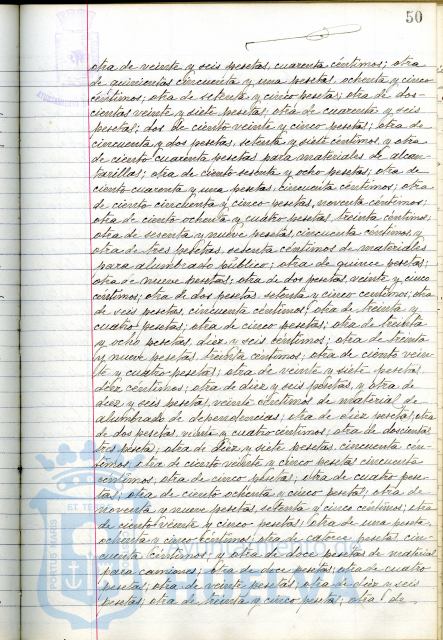 50
otra de veinte y seis pesetas, cuarenta céntimos; otra
de quinientas cincuenta y una pesetas ochenta y cinco
céntimos; otra de setenta y cinco pesetas; otra de dos-
cientas veinte y siete pesetas; otra de cuarenta y seis
pesetas; dos de ciento veinte y cinco pesetas; otra de
cincuenta y dos pesetas, setenta y siete céntimos y otra
de ciento cuarenta pesetas para materiales de alcan-
tarillas; otra de ciento sesenta y ocho pesetas; otra de
ciento cuarenta y una pesetas cincuenta céntimos; otra
de ciento cincuenta y cinco pesetas, noventa céntimos;
otra de ciento ochenta y cuatro pesetas, treinta céntimos;
otra de sesenta y nueve pesetas, cincuenta céntimos y
otra de tres pesetas, setenta céntimos de materiales
para alumbrado público; otra de quince pesetas;
otra de nueve pesetas; otra de dos pesetas, veinte y cinco
céntimos; otra de dos pesetas setenta y cinco céntimos; otra
de seis pesetas, cincuenta céntimos; otra de treinta y
cuatro pesetas; otra de cinco pesetas; otra de treinta
y ocho pesetas, diez y seis céntimos; otra de treinta
y nueve pesetas, treinta céntimos; otra de ciento vein-
te y cuatro pesetas; otra de veinte y siete pesetas,
diez céntimos; otra de diez y seis pesetas, y otra de
diez y seis pesetas, veinte céntimos de material de
alumbrado de dependencias; otra de diez pesetas; otra
de dos pesetas, veinte y cuatro céntimos; otra de doscientas
tres pesetas; otra de diez y siete pesetas cincuenta cén-
timos; otra de ciento veinte y cinco pesetas cincuenta
céntimos; otra de cinco pesetas; otra de cuatro pese-
tas; otra de ciento ochenta y cinco pesetas; otra de
noventa y nueve pesetas, setenta y cinco céntimos; otra
de ciento veinte y cinco pesetas; otra de una peseta,
ochenta y cinco céntimos; otra de catorce pesetas, cin-
cuenta céntimos; y otra de doce pesetas de material
para camiones; otra de doce pesetas; otra de cuatro
pesetas; otra de veinte pesetas; otra de diez y seis
pesetas; otra de treinta y cinco pesetas; otra de
PORTUS MARIS